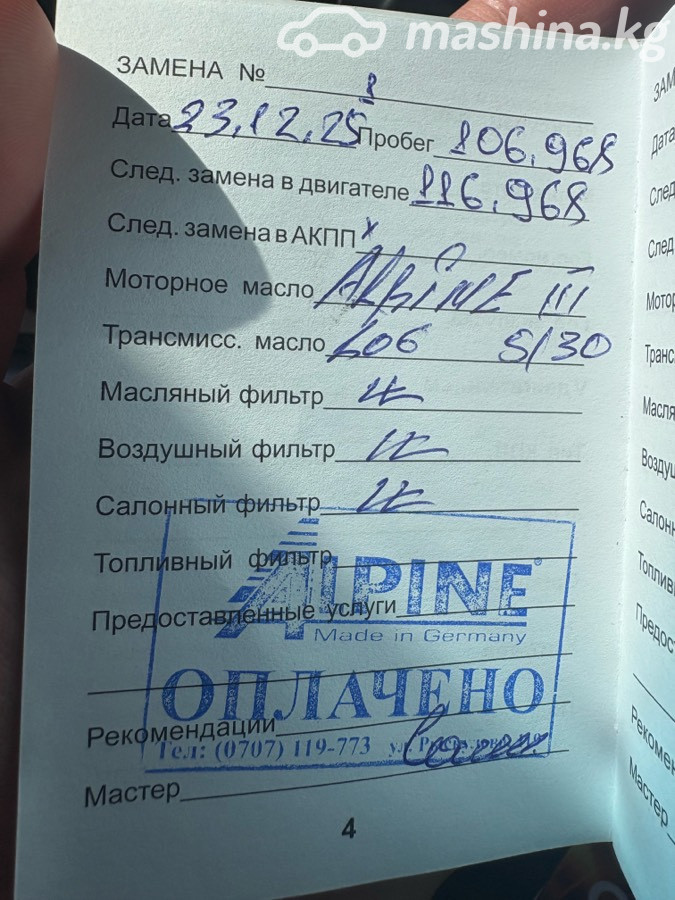 mashina.kg
ЗАМЕНА № 8
Дата 23.12.25 Пробег 106.968
След. замена в двигателе 116.968
След. замена в АКПП х
Моторное масло ALPINE III
Трансмисс. масло 5/30
Масляный фильтр
Воздушный фильтр
Салонный фильтр
Топливный фильтр
ALPINE
Предоставленные услуги
Made in Germany
ОПЛАЧЕНО
Рекомендации
Тел: (0707) 119-773 ул.
Мастер
4
ЗАМ
Дата
След
След.
Мотор
Транс
Масля
Воздуш
Салонн
Топлив
Предос
Рекомен
Мастер